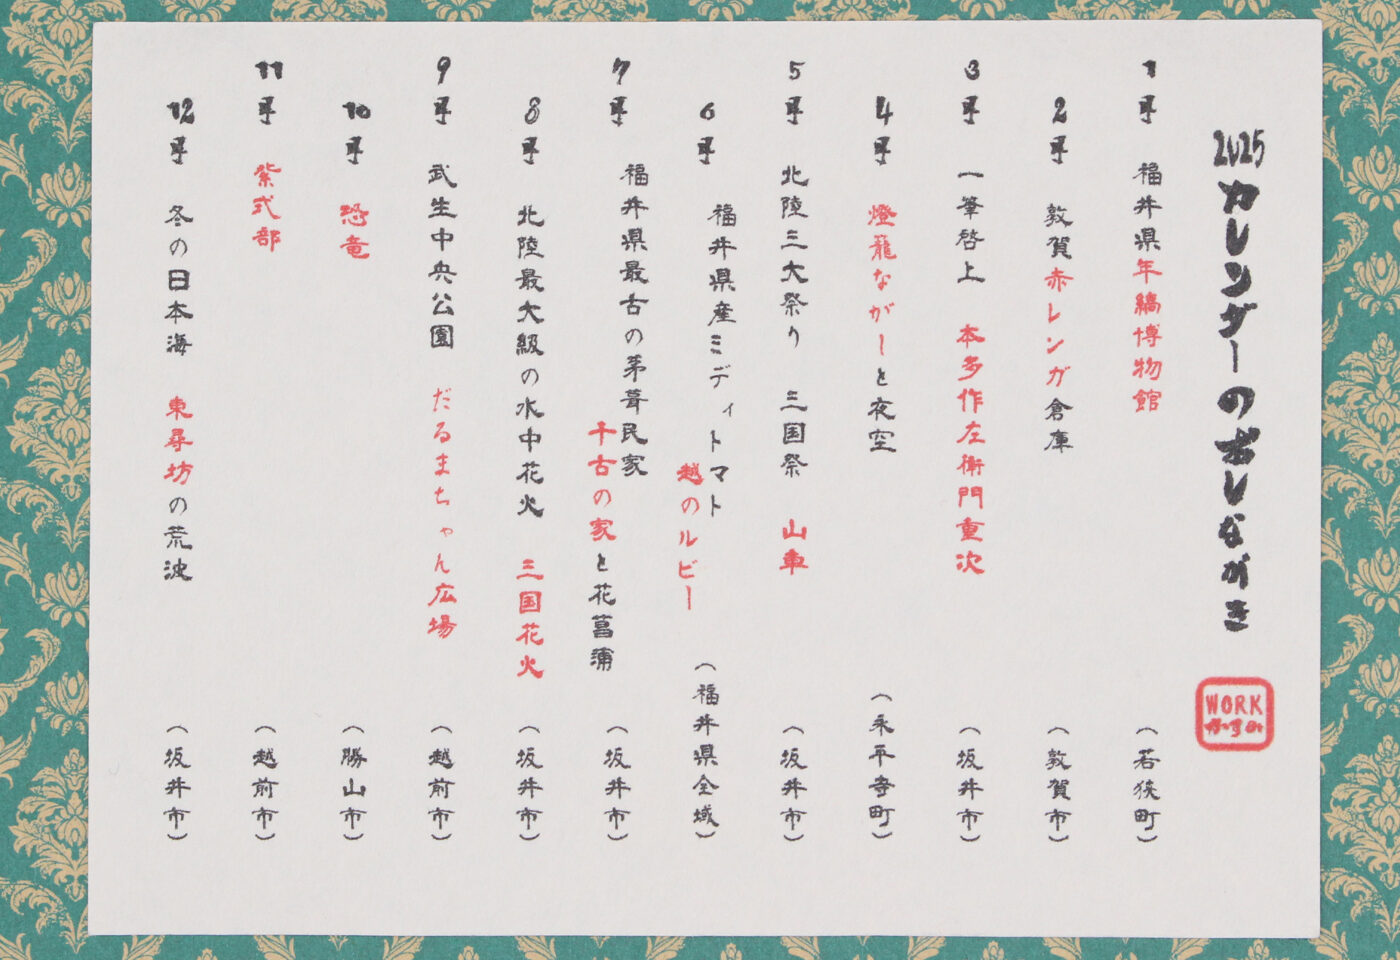 2025カレンダーのおしながき
WORK
1月 福井県年縞博物館 （若狭町）
2月 敦賀赤レンガ倉庫 （敦賀市）
3月 一筆啓上 本多作左衛門重次 （坂井市）
4月 燈籠ながーと夜空 （永平寺町）
5月 北陸三大祭り 三国祭 山車 （坂井市）
6月 福井県産ミディトマト
越のルビー （福井県全域）
7月 福井県最古の茅葺民家
千古の家と花菖蒲 （坂井市）
8月 北陸最大級の水中花火 三国花火 （坂井市）
9月 武生中央公園 だるまちゃん広場 （越前市）
10月 恐竜 （勝山市）
11月 紫式部 （越前市）
12月 冬の日本海 東尋坊の荒波 （坂井市）